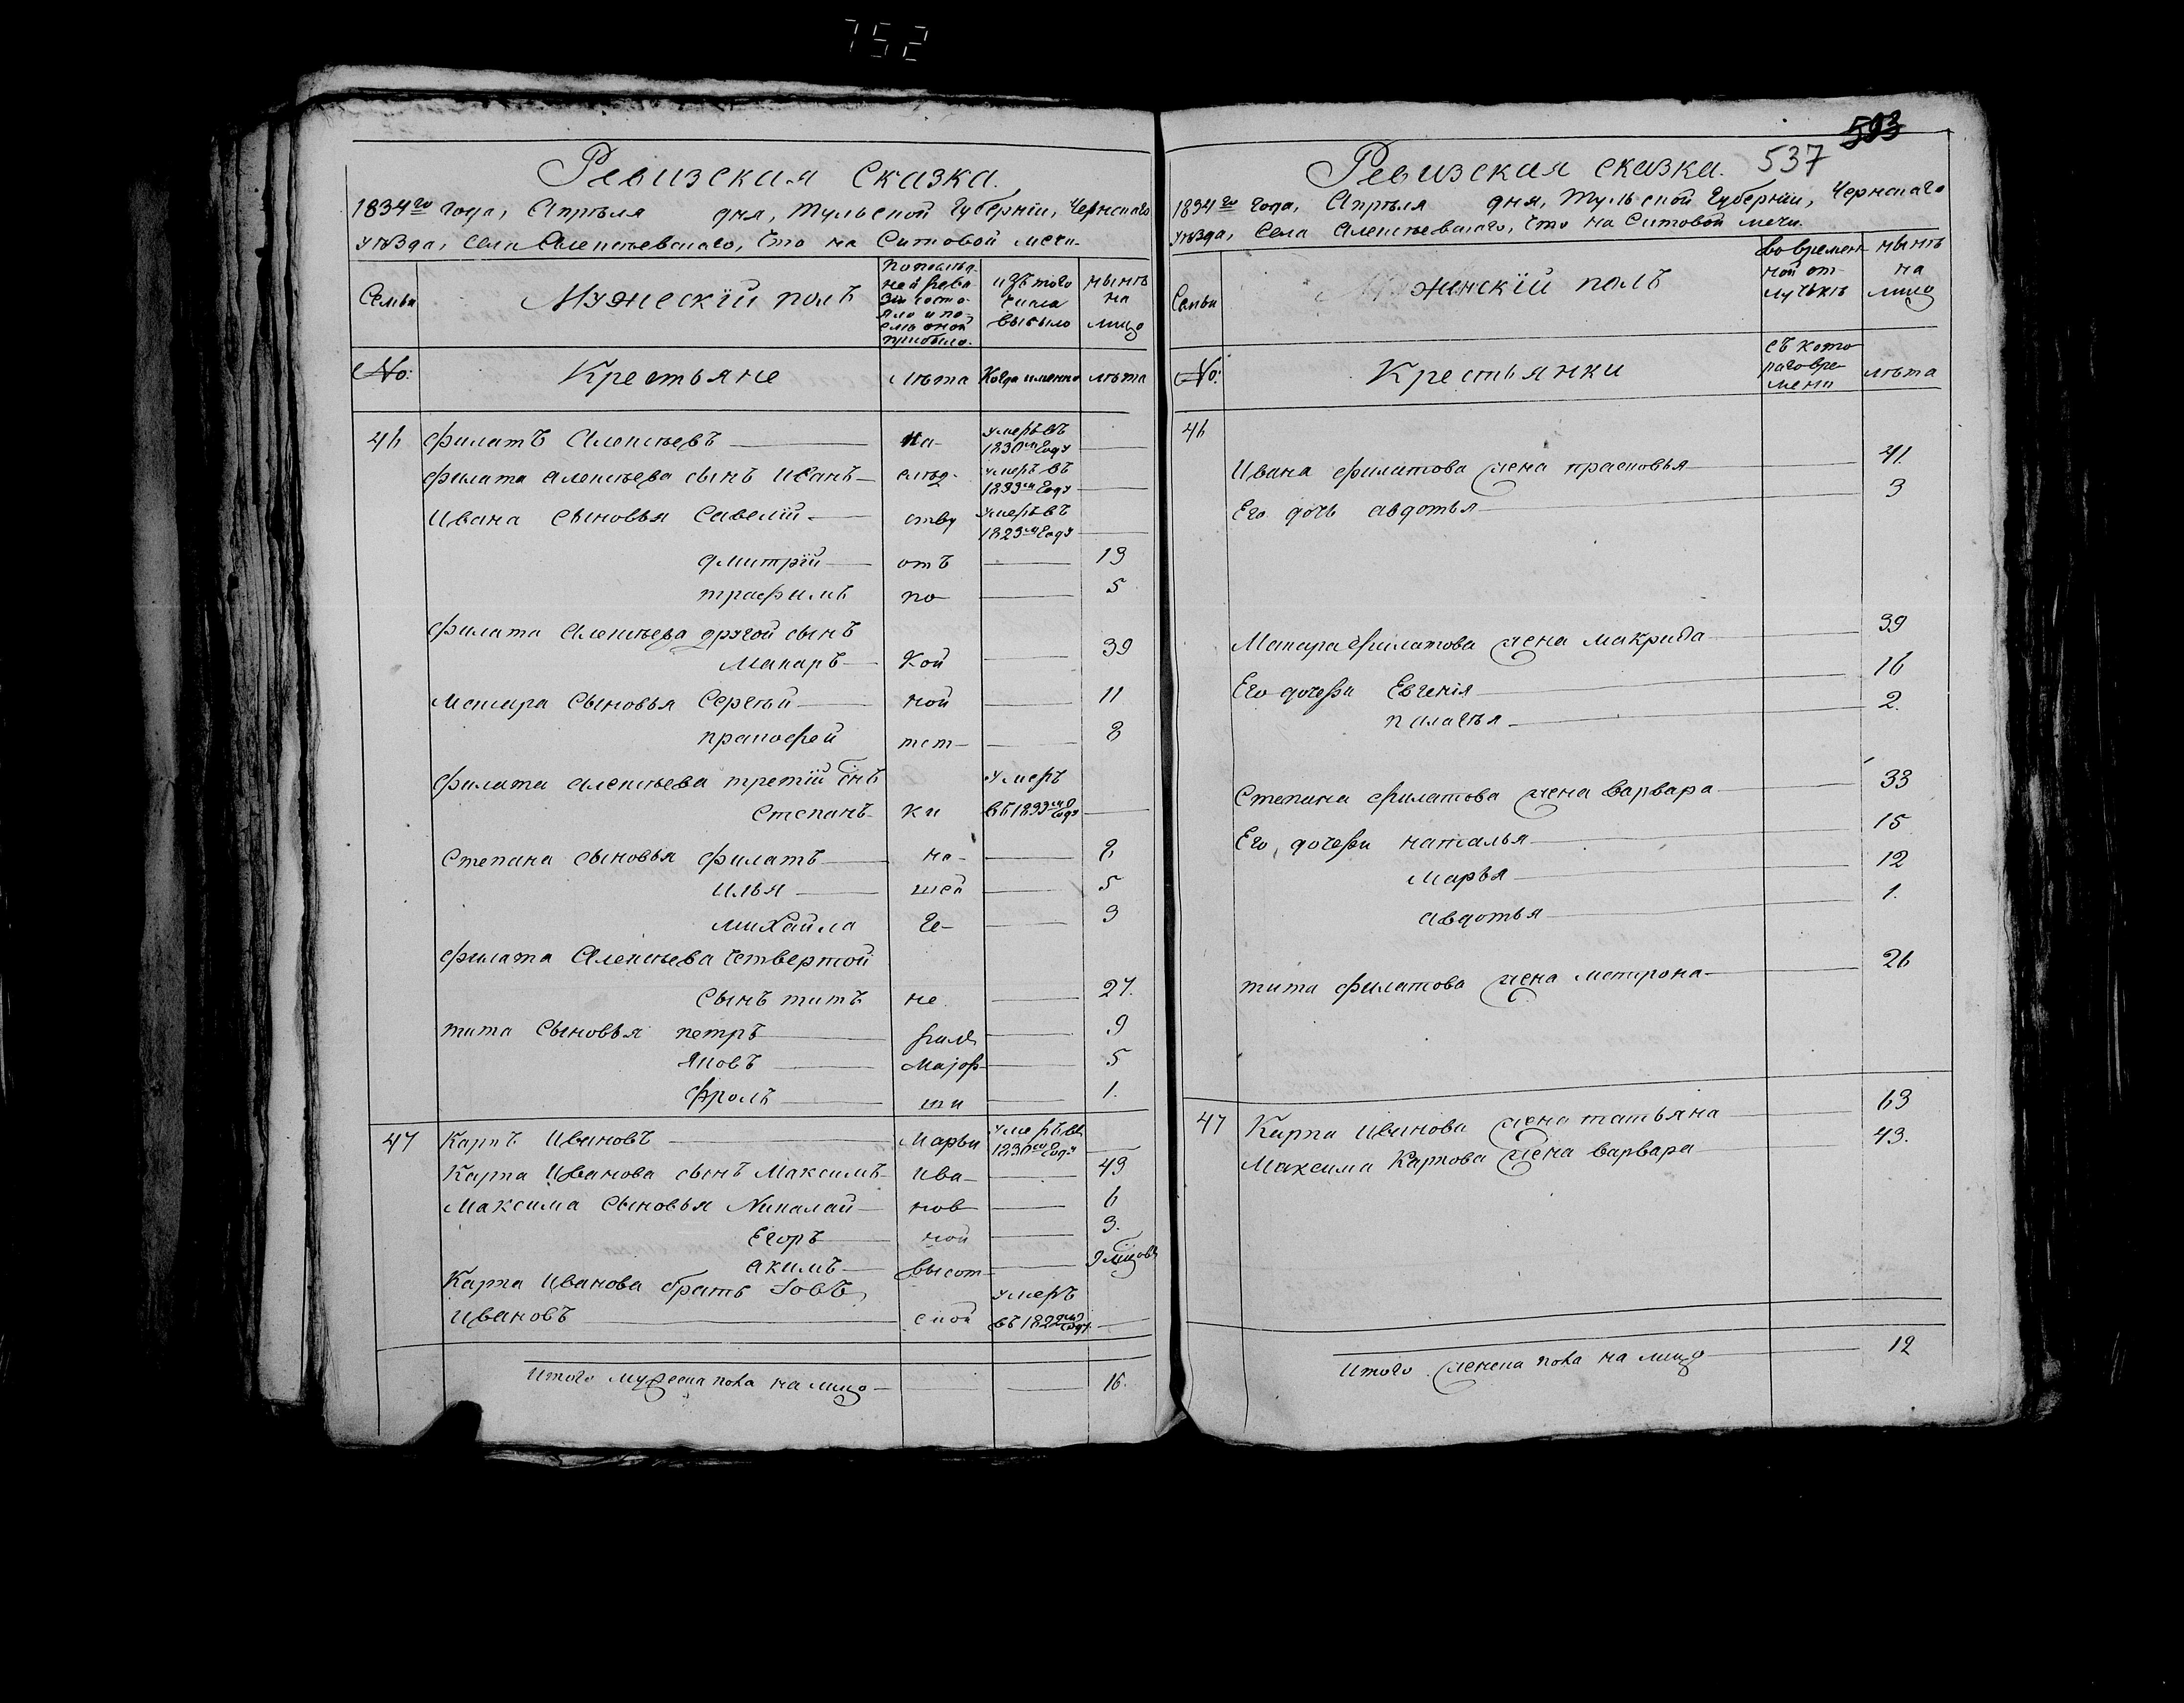 752
Ревизская сказка.
1834го года, Апреля дня, Тульской Губернїи, Чернскаго
уѣзда, села Алексѣевскаго, Что на Ситовой мечи.
Семьи
Мужескїй полъ
по послѣд-
ней реви-
зіи состо-
яло и по-
слѣ оной
прибыло.
изъ того
числа
выбыло
нынѣ
на
лицо
No:
Крестьяне
лѣта
Когда именно
лѣта
46 филатъ Алексѣевъ на- умеръ въ 1830м Году
филата алексѣева сынъ Иванъ слѣд- умеръ въ 1833м Году
Ивана сыновья Савелїй ству умеръ въ 1823м Году
дмитрїй отъ 13
трафимъ по 5
филата Алексѣева другой сынъ
Макаръ Кой 39
Макара сыновья Сергѣй ной 11
пракофей тет- 8
филата алексѣева третїй снъ умеръ
степанъ ки въ 1833м Году
Степана сыновья филатъ на- 8
илья шей 5
михайла Ге- 3
филата Алексѣева четвертой
сынъ титъ не 27.
тита сыновья петръ 9
Яковъ Маjор- 5
Фролъ ши 1.
47 Карпъ Ивановъ Марьи умеръ въ 1830м Году
Карпа Иванова сынъ Максимъ Ива- 43
Максима сыновья Николай нов 6
Егоръ ной 3.
акимъ высот-
Карпа Иванова братъ Iовъ умеръ
Ивановъ ской въ 1822м Году
Итого мужеска пола на лицо 16.
593
537
Ревизская сказка.
1834го года, Апрѣля дня, Тульской Губернїи, Чернскаго
уѣзда, Села Алексѣевскаго, Что на Ситовой мечи.
Семьи
Женскїй полъ
во времен-
ной от-
лучкѣ
нынѣ
на
лицо
No:
Крестьянки
съ кото
раго вре-
мени
лѣта
46
Ивана филатова жена прасковья 41.
Его дочь авдотья 3
Макара филатова жена макрида 39
Его дочери Евгенїя 16
палагѣя 2.
Степана филатова жена варвара 33
Его дочери наталья 15
Марья 12
авдотья 1.
тита филатова жена матрона 26
47 Карпа Иванова жена татьяна 63
Максима Карпова жена варвара 43.
Итого женска пола на лицо 12